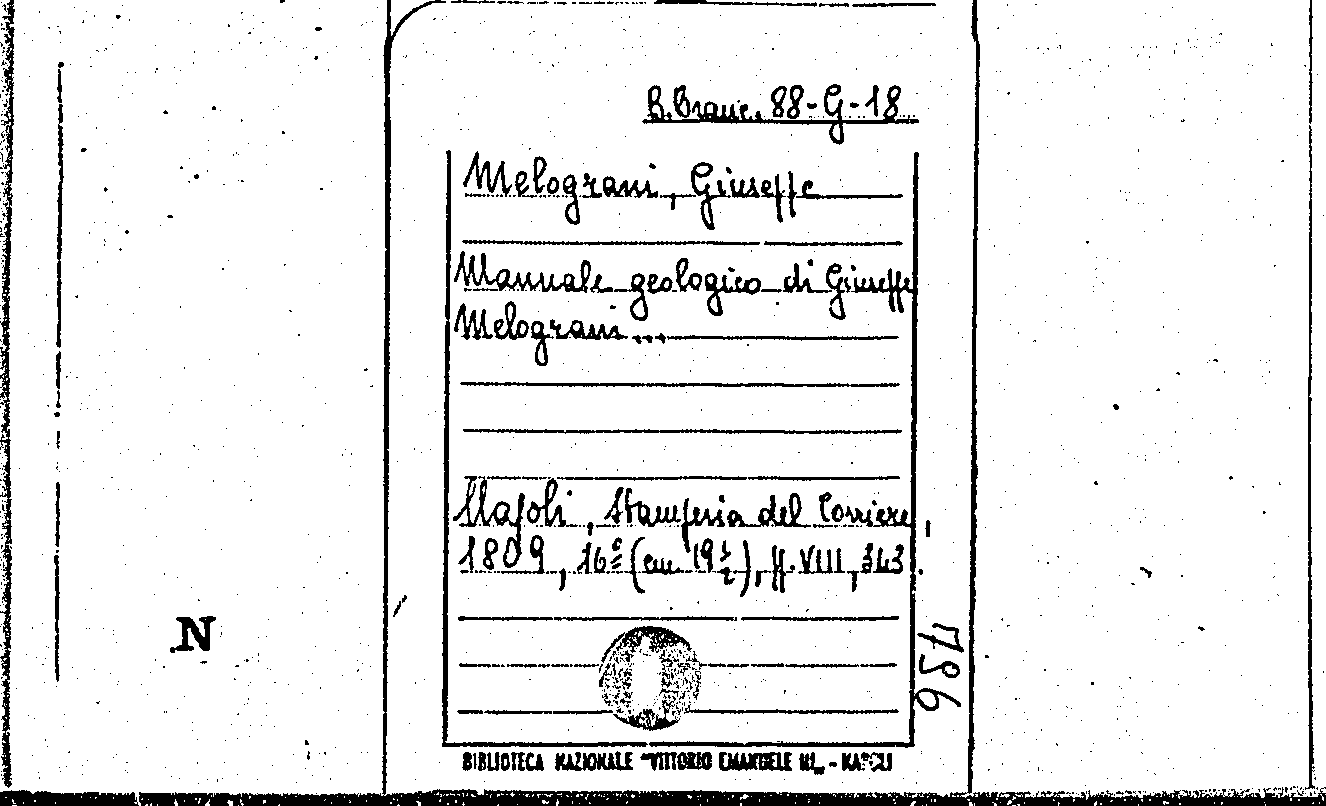 B. Branc. 88-G-18
Melograni, Giuseppe
Manuale geologico di Giuseppe
Melograni...
Napoli, Stamperia del Corriere,
1809, 16º (cm 19 1/2), pp. VIII, 343.
1786
N
BIBLIOTECA NAZIONALE "VITTORIO EMANUELE III„ - NAPOLI